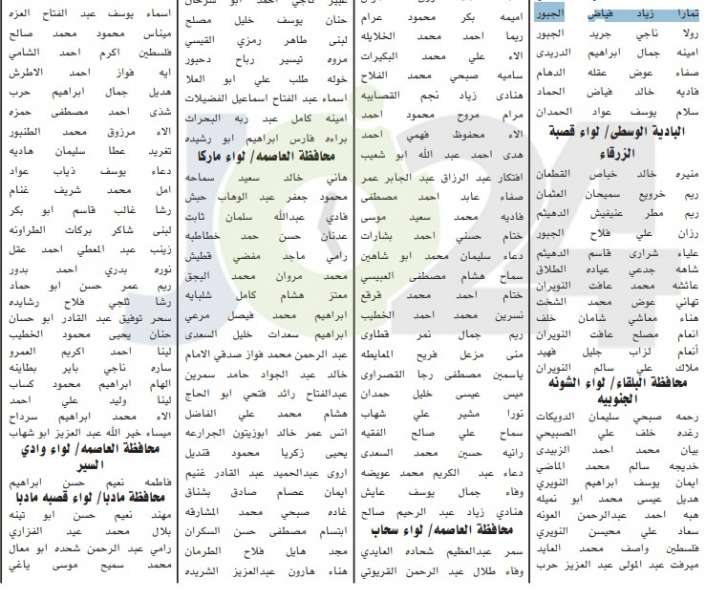 تمارا زياد فياض الجبور
رولا ناجي جريد الجبور
امينه جمال ابراهيم الدريدى
صفاء عوض عقله الدهام
فاديه خالد فياض الحماد
سلام يوسف عواد الحمدان
البادية الوسطى/ لواء قصبة
الزرقاء
منيره خالد خياص القطعان
ريم خرويع سميحان العثمان
ريم مطر عنيفيش الدهيثم
رزان علي فلاح الجبور
علياء شرارى قاسم الدهيثم
شاهه جدعي عياده الطلاق
عائشه محمد عافت النويران
تهاني عوض محمد الشخت
هناء معاشي شامان خلف
انعام مصلح عافت النويران
أنعام لزاب جليل فهيد
ملاك علي سالم النويران
محافظة البلقاء/ لواء الشونه
الجنوبيه
رحمه صبحي سليمان الدويكات
رغده خلف علي الصبيحي
بيان محمد احمد الزبيدى
خديجه سالم محمد الماضي
ايمان يوسف ابراهيم النويري
هديل عيسى محمد ابو نميله
هبه احمد عبدالرحمن العونه
سعاد علي محيسن النويري
فلسطين واصف محمد العايد
ميرفت عبد المولى عبد العزيز حرب
اميمه بكر محمود عرام
ريما احمد محمد الخلايله
الاء علي محمد البكيرات
ساميه صبحي محمد الفلاح
هنادى زياد نجم القصايبه
مرام مروح محمود احمد
الاء محفوظ فهمي احمد
هدى احمد عبد الله ابو شعيب
افتكار عبد الرزاق عبد الجابر عمر
صفاء عابد احمد مصطفى
فاديه محمد سعيد موسى
ختام حسني احمد بشارات
دعاء سليمان محمد ابو شاهين
سماح هشام مصطفى العبيسي
ختام احمد محمد قرقع
نسرين محمد احمد الخطيب
ريم جمال نمر قطاوى
منى مزعل فريح المعايطه
ياسمين مصطفى رجا القصراوى
ميس عيسى خليل حمدان
نورا مشير علي شهاب
سماح علي صالح الفقيه
رانيه حسين محمد السعدى
دعاء عبد الكريم محمد عويضه
وفاء جمال يوسف عايش
هنادي زياد عبد الرحيم صالح
محافظة العاصمه/ لواء سحاب
سمر عبدالعظيم شحاده العايدي
وفاء طلال عبد الرحمن القريوتي
عبير ناجي احمد ابو سرحان
حنان يوسف خليل مصلح
لبنى طاهر رمزي القيسي
مروه تيسير رباح دحبور
خوله طلب علي ابو العلا
اسماء عبد الفتاح اسماعيل الفضيلات
امينه كامل عبد ربه البحرات
براءه فارس ابراهيم ابو رشيده
محافظة العاصمه/ لواء ماركا
هاني خالد سعيد سماحه
محمود جعفر عبد الوهاب حبش
فادي عبدالله سلمان ثابت
عدنان حسن حمد خطاطبه
رامي ماجد مفضي قطيش
محمد مروان محمد البجق
معتز هشام كامل شلبايه
ابراهيم محمد فيصل مرعي
ابراهيم سعدات خليل السعدى
عبد الرحمن محمد فواز صدقي الامام
خالد عبد الجواد حامد سمرين
عبدالفتاح رائد فتحي ابو الحاج
هشام محمد علي الفاضل
انس عمر خالد ابوزيتون الجرارعه
يحيى زكريا محمود قنديل
اروى عبدالحميد عبد القادر غنيم
ايمان عصام صادق بشناق
غاده صبحي محمد المشارقه
ابتسام مصطفى حسن السكران
مجد هايل فلاح الطرمان
هناء هارون عبدالعزيز الشريده
اسماء يوسف عبد الفتاح العزه
ميناس محمود محمد صالح
فلسطين اكرم احمد الشامي
ايه فواز احمد الاطرش
هديل جمال ابراهيم حرب
شذى احمد مصطفى حمزه
الاء مرزوق محمد الطنبور
تغريد عطا سليمان هاديه
دعاء يوسف ذياب عواد
امل محمد شريف غنام
رشا غالب قاسم ابو بكر
لبنى شاكر بركات الطراونه
زينب عبد المعطي احمد عقل
نوره بدري احمد بدور
ريم عمر حسن ابو حماد
رشا ثلجي فلاح رشايده
سحر توفيق عبد القادر ابو حسان
حنان يحيى محمود الخطيب
لينا احمد اكريم العمرو
ساره ناجي باير بطاينه
الهام ابراهيم محمود كساب
لينا وليد علي احمد
الاء محمد ابراهيم سرداح
ميساء خير الله عبد العزيز ابو شهاب
محافظة العاصمه/ لواء وادي
السير
فاطمه نعيم حسن ابراهيم
محافظة مادبا/ لواء قصبه مادبا
مهند نعيم حسن ابو تينه
بلال محمد عيد الفزاري
رامي عبد الرحمن شحده ابو معال
محمد سميح موسى ياغي